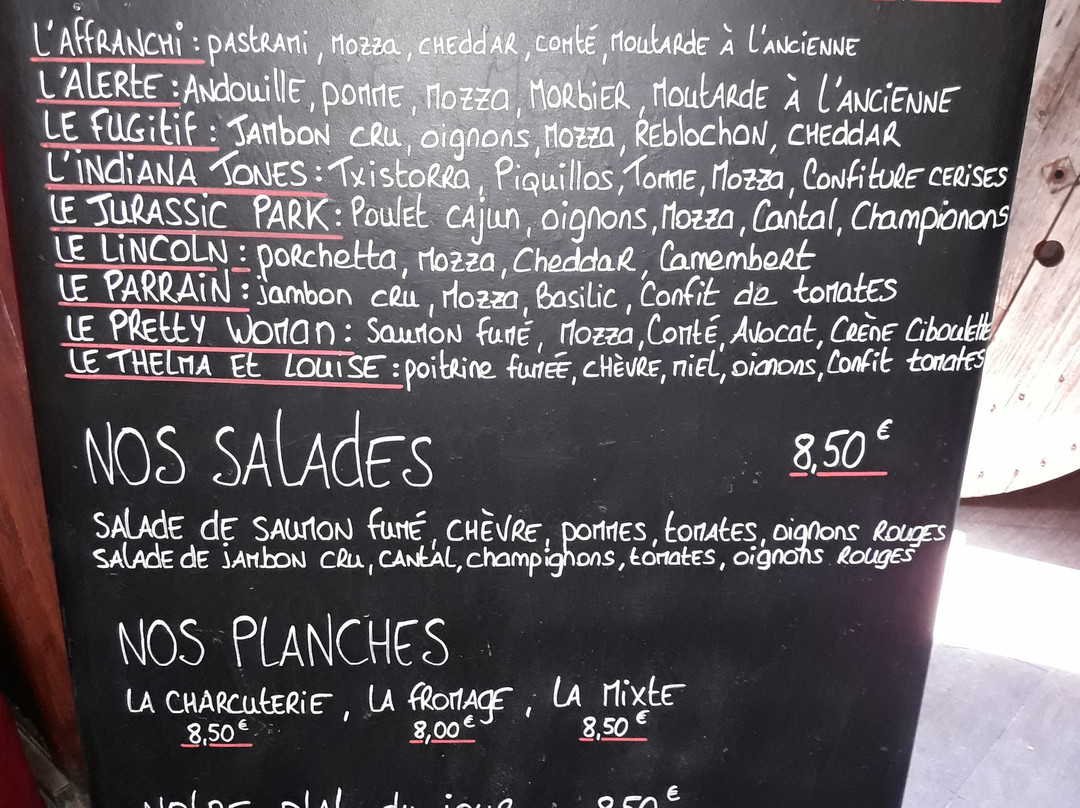 L'AFFRANCHI : PASTRAMI, MOZZA, CHEDDAR, COMTÉ, MOUTARDE À L'ANCIENNE
L'ALERTE : ANDOUILLE, POMME, MOZZA, MORBIER, MOUTARDE À L'ANCIENNE
LE FUGITIF : JAMBON CRU, oignons, MOZZA, REBLOCHON, CHEDDAR
L'INDIANA JONES : TXISTORRA, Piquillos, TOMME, MOZZA, CONFITURE CERISES
LE JURASSIC PARK : Poulet CAJUN, oignons, MOZZA, Cantal, Champignons
LE LINCOLN : porchetta, MOZZA, Cheddar, Camembert
LE PARRAIN : jambon cru, Mozza, Basilic, Confit de tomates
LE PRETTY WOMAN : SAUMON FUMÉ, MOZZA, Comté, Avocat, CRÈME Ciboulette
LE THELMA ET LOUISE : poitrine fumée, CHÈVRE, MIEL, oignons, Confit tomates
NOS SALADES 8,50€
SALADE DE SAUMON FUMÉ, CHÈVRE, POMMES, tomates, oignons ROUGES
SALADE DE JAMBON CRU, CANTAL, champignons, tomates, oignons ROUGES
NOS PLANCHES
LA CHARCUTERIE, LA FROMAGE, LA MIXTE
8,50€ 8,00€ 8,50€
NOTRE PLAT du jour 8,50€